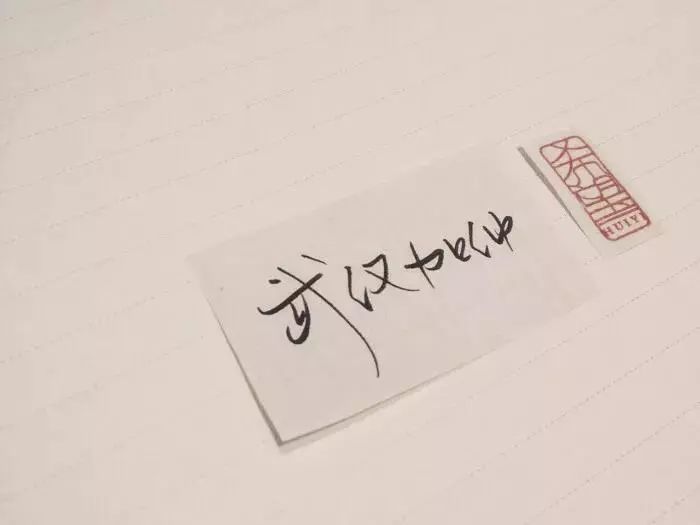 武汉加油
HUIYI